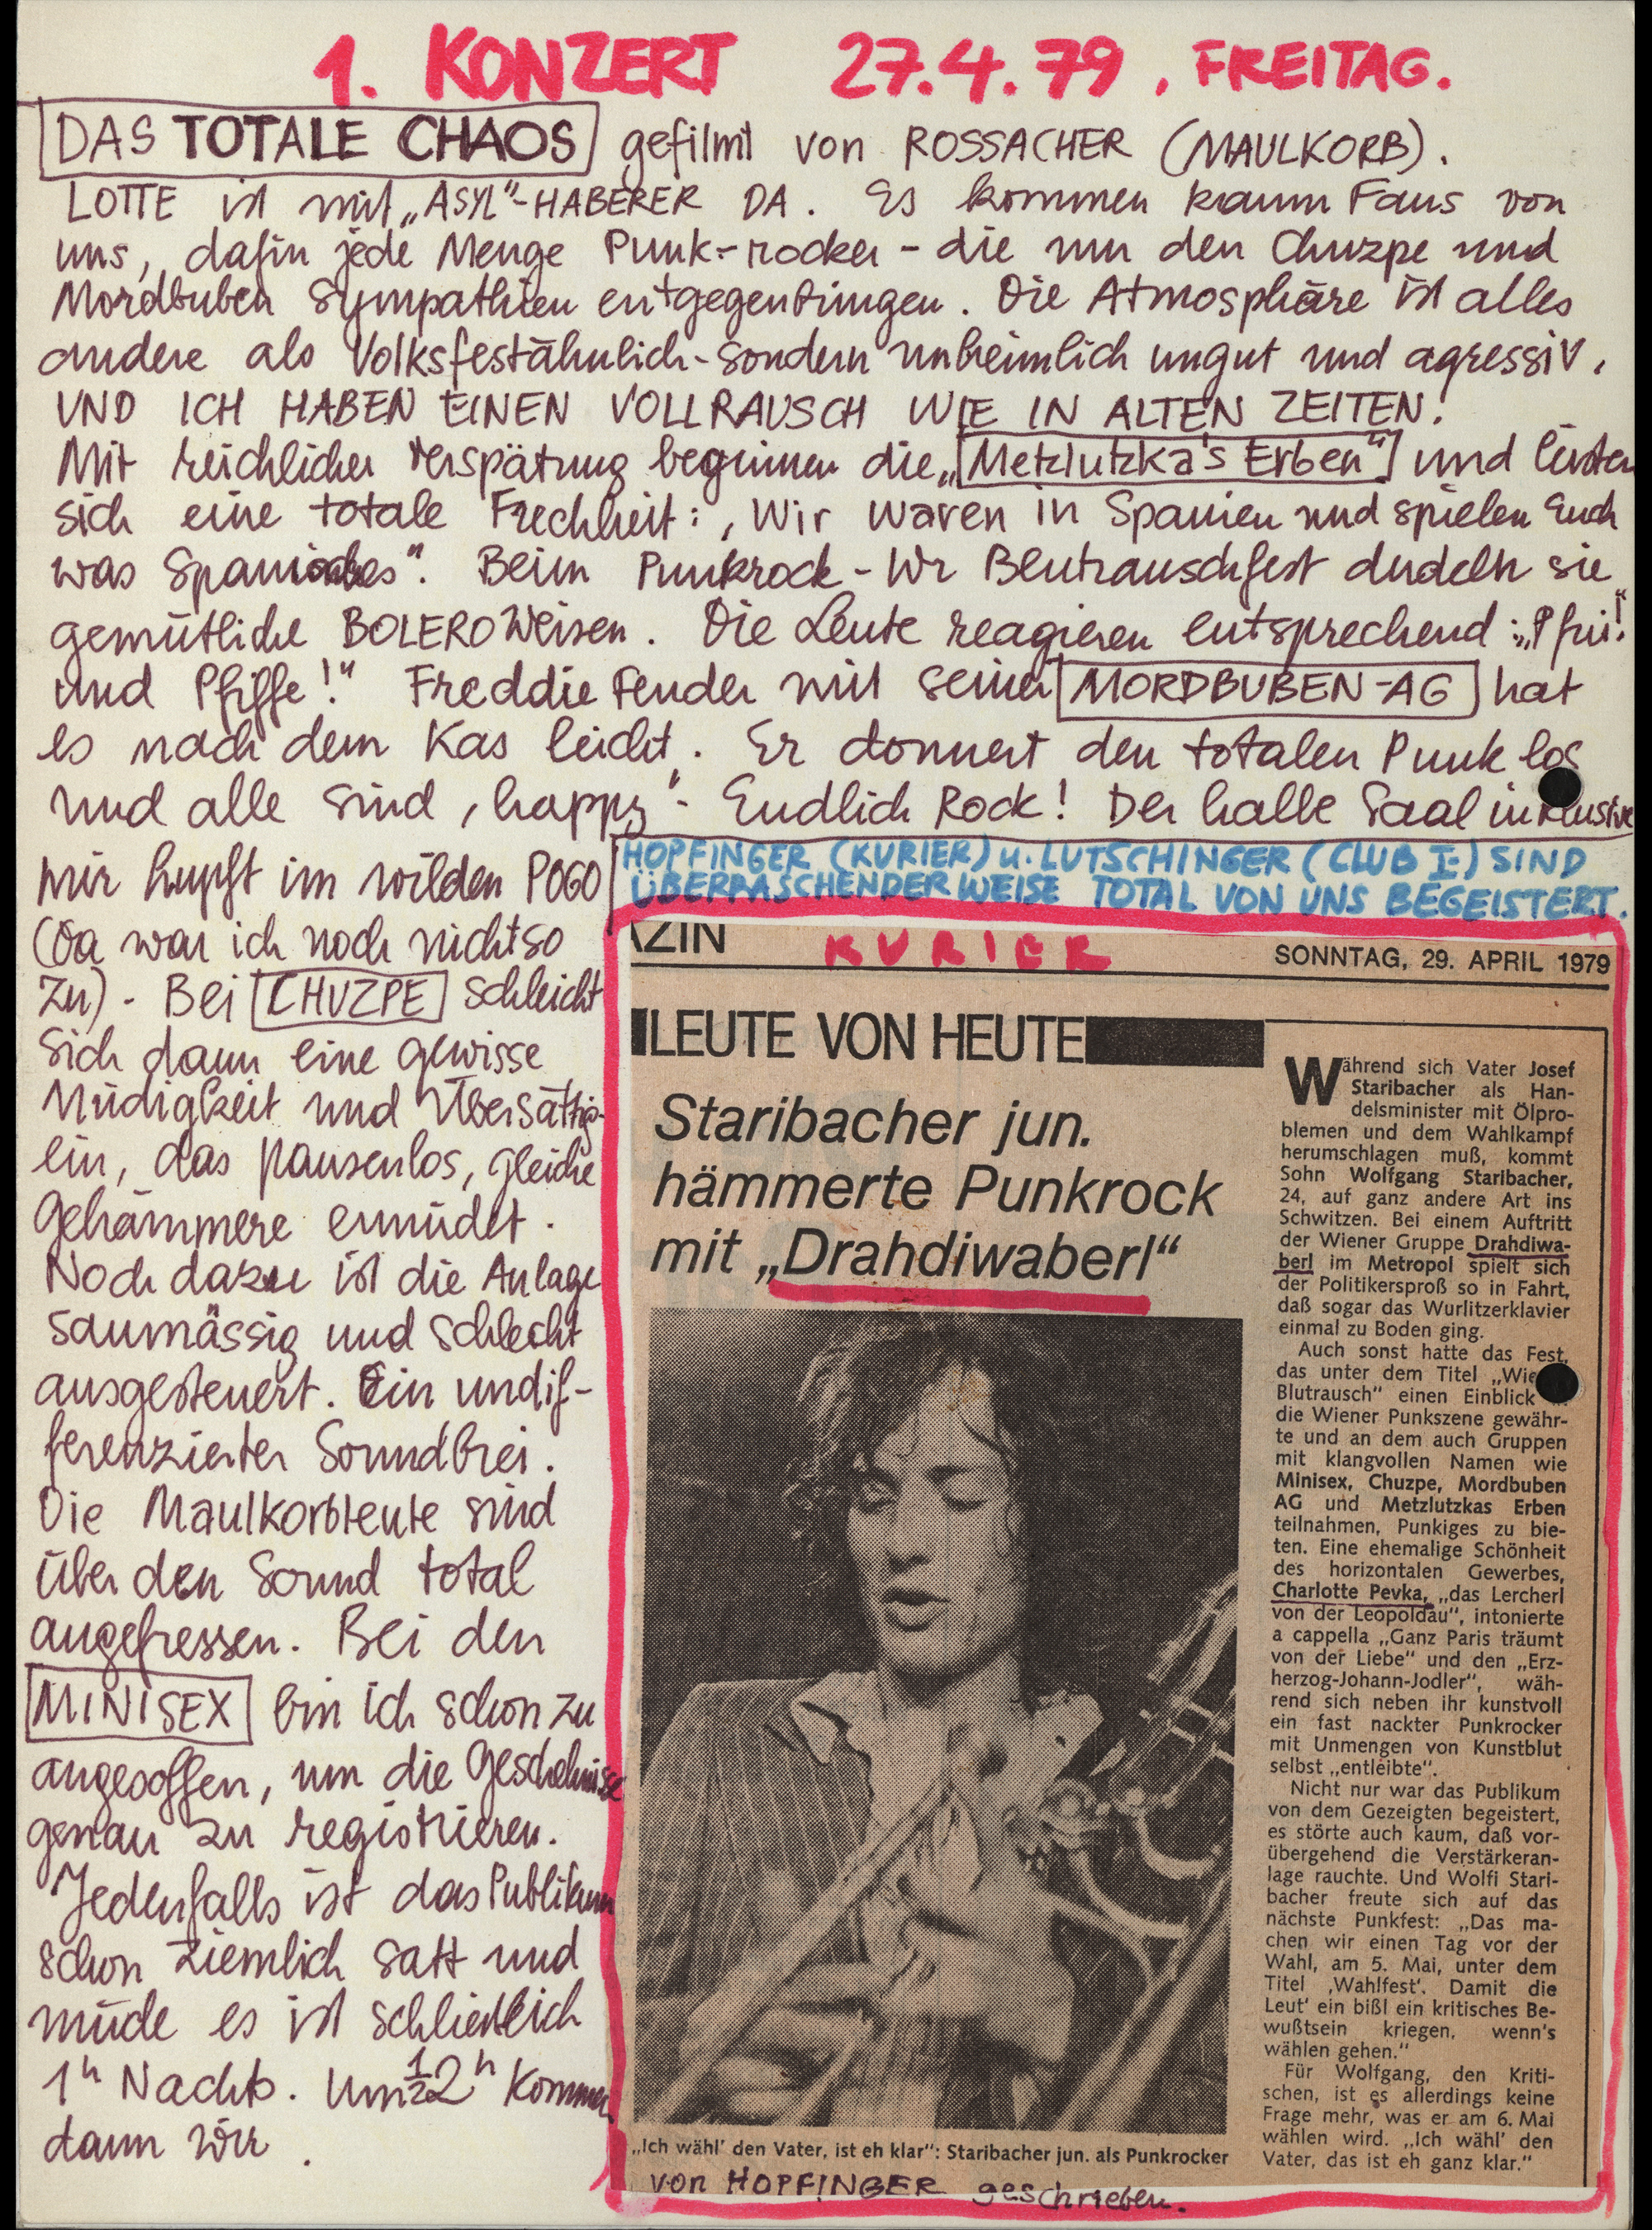 1. KONZERT 27.4.79, FREITAG.
DAS TOTALE CHAOS gefilmt von ROSSACHER (MAULKORB).
LOTTE ist mit „ASYL"-HABERER DA. Es kommen kaum Fans von
uns, dafür jede Menge Punk-rocker - die nur den Chuzpe und
Mordbuben Sympathien entgegenbringen. Die Atmosphäre ist alles
andere als Volksfestähnlich - sondern unheimlich ungut und agressiv.
UND ICH HABEN EINEN VOLLRAUSCH WIE IN ALTEN ZEITEN!
Mit reichlicher Verspätung beginnen die „Metzlutzka's Erben" und leisten
sich eine totale Frechheit: „Wir waren in Spanien und spielen Euch
was Spanisches". Beim Punkrock - Wr Blutrauschfest dudeln sie
gemütliche BOLERO Weisen. Die Leute reagieren entsprechend: „Pfui!"
und Pfiffe!" Freddie Fender mit seiner MORDBUBEN-AG hat
es nach dem Kas leicht. Er donnert den totalen Punk los
und alle sind „happy" - Endlich Rock! Der halbe Saal inklusive
mir hupft im wilden POGO
(Da war ich noch nicht so
zu) - Bei CHUZPE schleicht
sich dann eine gewisse
Müdigkeit und Übersättig-
ein, das pausenlos, gleiche
Gehämmere ermüdet.
Noch dazu ist die Anlage
saumässig und schlecht
ausgesteuert. Ein undif-
ferenzierter Soundbrei.
Die Maulkorbleute sind
über den Sound total
angefressen. Bei den
MINISEX bin ich schon zu
angesoffen, um die Geschehnisse
genau zu registrieren.
Jedenfalls ist das Publikum
schon ziemlich satt und
müde es ist schließlich
1h Nachts. Um 1/2 2h kommen
dann wir.
HOPFINGER (KURIER) u. LUTSCHINGER (CLUB I-) SIND
ÜBERRASCHENDER WEISE TOTAL VON UNS BEGEISTERT.
AZIN KURIER SONNTAG, 29. APRIL 1979
LEUTE VON HEUTE
Staribacher jun.
hämmerte Punkrock
mit „Drahdiwaberl"
„Ich wähl' den Vater, ist eh klar": Staribacher jun. als Punkrocker
von HOPFINGER geschrieben.
Während sich Vater Josef
Staribacher als Han-
delsminister mit Ölpro-
blemen und dem Wahlkampf
herumschlagen muß, kommt
Sohn Wolfgang Staribacher,
24, auf ganz andere Art ins
Schwitzen. Bei einem Auftritt
der Wiener Gruppe Drahdiwa-
berl im Metropol spielt sich
der Politikersproß so in Fahrt,
daß sogar das Wurlitzerklavier
einmal zu Boden ging.
Auch sonst hatte das Fest,
das unter dem Titel „Wie
Blutrausch" einen Einblick
die Wiener Punkszene gewähr-
te und an dem auch Gruppen
mit klangvollen Namen wie
Minisex, Chuzpe, Mordbuben
AG und Metzlutzkas Erben
teilnahmen, Punkiges zu bie-
ten. Eine ehemalige Schönheit
des horizontalen Gewerbes,
Charlotte Pevka, „das Lercherl
von der Leopoldau", intonierte
a cappella „Ganz Paris träumt
von der Liebe" und den „Erz-
herzog-Johann-Jodler", wäh-
rend sich neben ihr kunstvoll
ein fast nackter Punkrocker
mit Unmengen von Kunstblut
selbst „entleibte".
Nicht nur war das Publikum
von dem Gezeigten begeistert,
es störte auch kaum, daß vor-
übergehend die Verstärkeran-
lage rauchte. Und Wolfi Stari-
bacher freute sich auf das
nächste Punkfest: „Das ma-
chen wir einen Tag vor der
Wahl, am 5. Mai, unter dem
Titel ‚Wahlfest'. Damit die
Leut' ein bißl ein kritisches Be-
wußtsein kriegen, wenn's
wählen gehen."
Für Wolfgang, den Kriti-
schen, ist es allerdings keine
Frage mehr, was er am 6. Mai
wählen wird. „Ich wähl' den
Vater, das ist eh ganz klar."